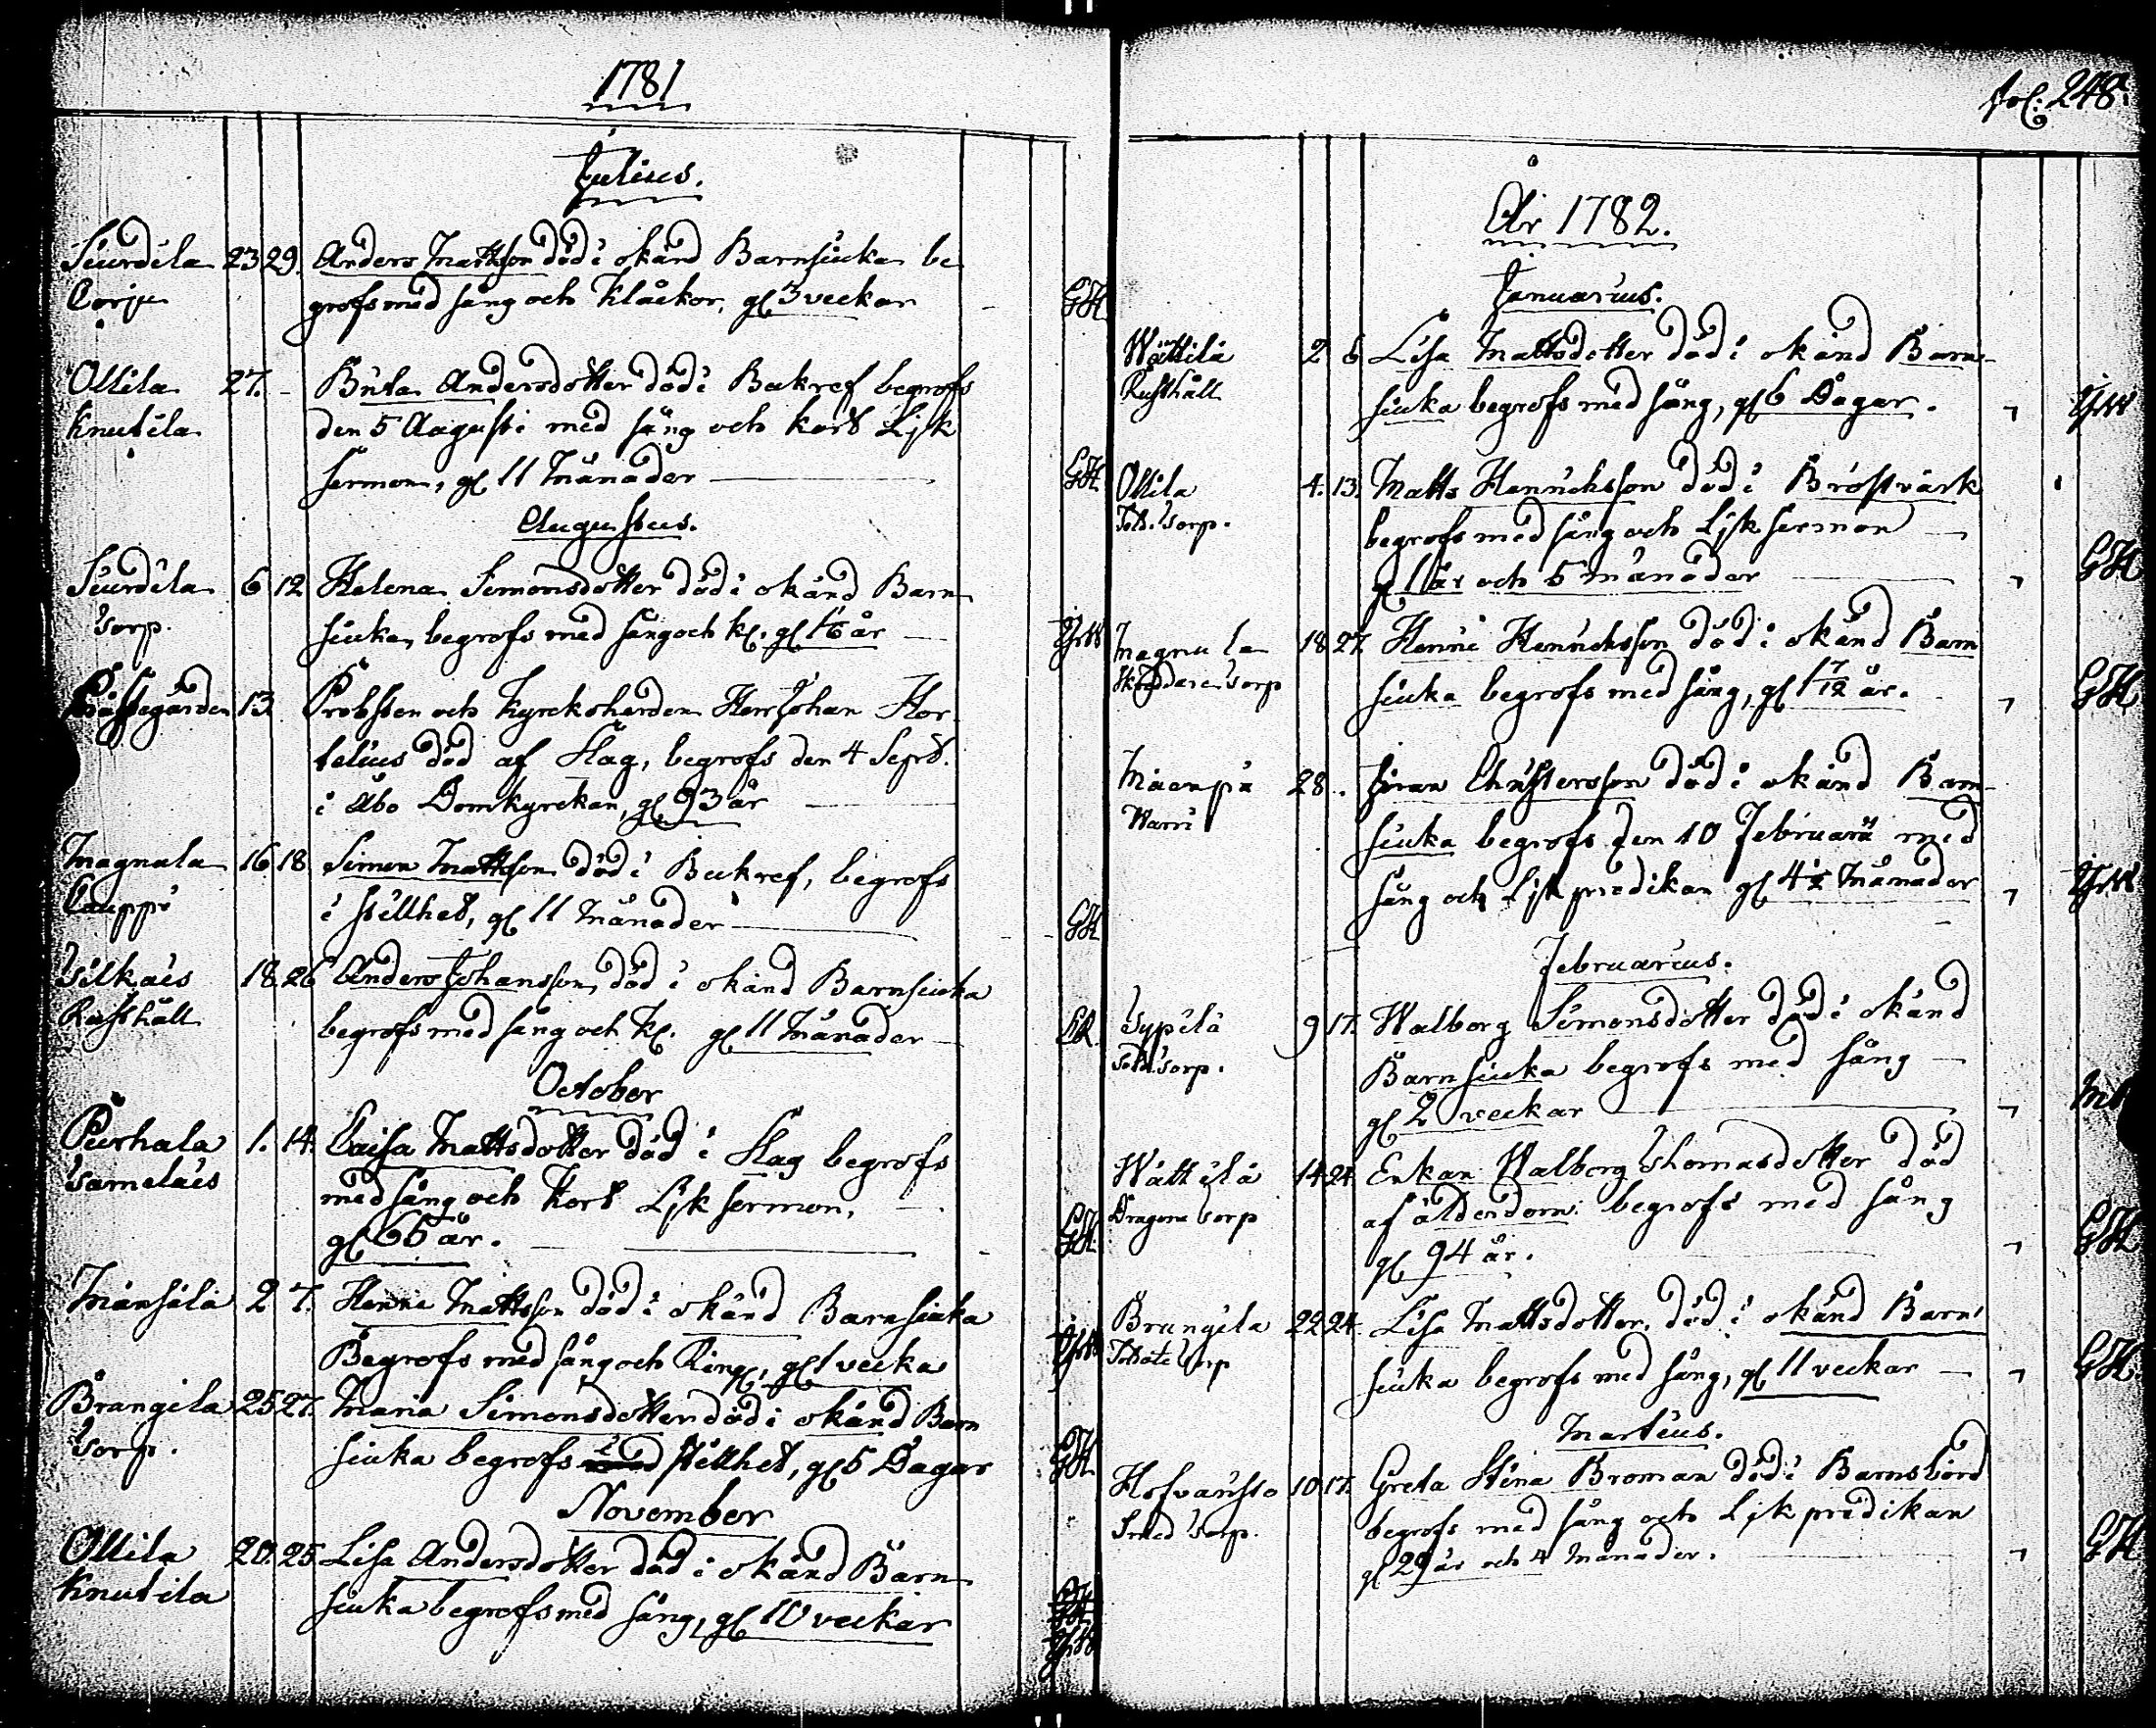 1781
Julius.
Siurdila 23 29. Anders Mattsson död i okänd Barnsiuka be
Corju grofs med sång och Klåckor, gl 3 veckar GH.
Ollila 27. Brita Andersdotter död i Bukref begrofs
Knutila den 5 Augusti med sång och kort Lijk
sermon, gl 11 Månader GH.
Augustus.
Siurdila 6 12 Helena Simonsdotter död i okänd Barn
torp. siuka, begrofs med sång och kl. gl 1 1/6 år
Prästegården 13. Probsten och Kyrckoherden Herr Johan Hor
telius död af Hag, begrofs den 4 Sept.
i Åbo Domkyrckan, gl 93 år
Magnula 16 18. Simon Mattsson död i Bukref, begrofs
Cauppi i stillhet, gl 11 Månader GH
Tilkais 18. 26 Anders Johansson död i okänd Barnsiuka
Rusthåll begrofs med sång och kl. gl 11 Månader
October
Piurhala 1. 14. Caisa Mattsdotter död i Hag begrofs
Tamelais med sång och kort Lijk sermon,
gl 65 år. GH.
Månsilä 2 7. Henric Mattsson död i okänd Barnsiuka
Begrofs med sång och Ring., gl 1 vecka
Brangila 25 27. Maria Simonsdotter död i okänd Barn
torp. siuka begrofs i stillhet, gl 5 Dagar GH
November
Ollila 20. 25. Lisa Andersdotter död i okänd Barn
Knutila siuka begrofs med sång, gl 10 veckar
fol. 248.
År 1782.
Januarius.
Wättilä 2 6 Lisa Mattsdotter död i okänd Barn-
Rusthåll siuka begrofs med sång, gl 6 Dagar.
Ollila 4. 13. Matts Henrichsson död i Bröstvärk
torp. begrofs med sång och Lijk sermon
gl 1 år och 5 månader GH
Magnula 18 27. Henric Henrichsson död i okänd Barn
torp siuka begrofs med sång, gl 1 7/12 år. GH
Mäenpä 28. Jöran Christersson död i okänd Barn-
Warri siuka begrofs den 10 Februarii med
sång och Lijk predikan gl 4 1/2 Månader
Februarius.
Typilä 9 17. Walborg Simonsdotter död i okänd
Sold. torp. Barnsiuka begrofs med sång
gl 2 veckar
Wättilä 14 24. Enkan Walborg Thomasdotter död
Dragone torp af ålderdom begrofs med sång
gl 94 år. GH
Brangila 22 24. Lisa Mattsdotter, död i okänd Barn-
torp siuka begrofs med sång, gl 11 veckar GH.
Martius.
10 17. Greta Stina Broman död i Barnsbörd
Smed torp. begrofs med sång och Lijk predikan
gl 29 år och 4 Månader. GH